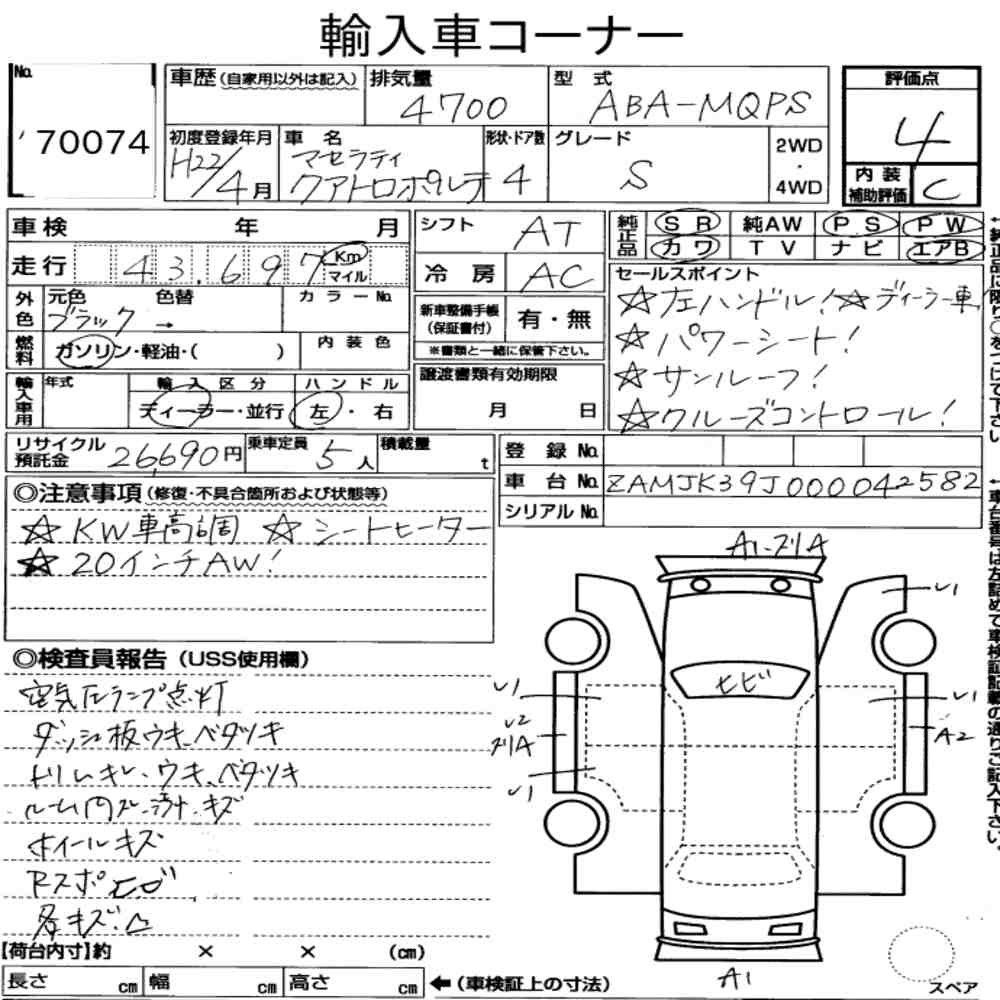 輸入車コーナー
No. 70074
車歴(自家用以外は記入) 排気量 4700 型式 ABA-MQPS 評価点 4
初度登録年月 H22/4月 車名 マセラティ クアトロポルテ 形状・ドア数 4 グレード S 2WD・4WD 内装補助評価 C
車検 年 月 シフト AT 純正品 SR 純AW PS PW
カワ TV ナビ エアB
走行 43,697 Km マイル 冷房 AC
セールスポイント
☆左ハンドル!☆ディーラー車
☆パワーシート!
☆サンルーフ!
☆クルーズコントロール!
外色 元色 ブラック 色替 → カラーNo.
新車整備手帳(保証書付) 有・無
※書類と一緒に保管下さい。
燃料 ガソリン・軽油・( ) 内装色
譲渡書類有効期限 月 日
輸入車用 年式 輸入区分 ディーラー・並行 ハンドル 左・右
リサイクル預託金 26,690円 乗車定員 5人 積載量 t
登録No.
車台No. ZAMJK39J000042582
シリアルNo.
◎注意事項(修復・不具合箇所および状態等)
☆KW車高調 ☆シートヒーター
☆20インチAW!
◎検査員報告(USS使用欄)
空気圧ランプ点灯
ダッシュ板ウキ、ベタツキ
トリムキレ、ウキ、ベタツキ
ルーム内スレ、汚れ、キズ
ホイールキズ
Rスポヒビ
各キズ凸
A1、ズリA
U1
ヒビ
U1
U2
ズリA
U1
U1
A2
A1
スペア
【荷台内寸】約 × × (cm)
長さ cm 幅 cm 高さ cm ←(車検証上の寸法)
↑純正品に限り○をつけて下さい
↑車台番号は左詰めで車検証記載の通りご記入下さい。